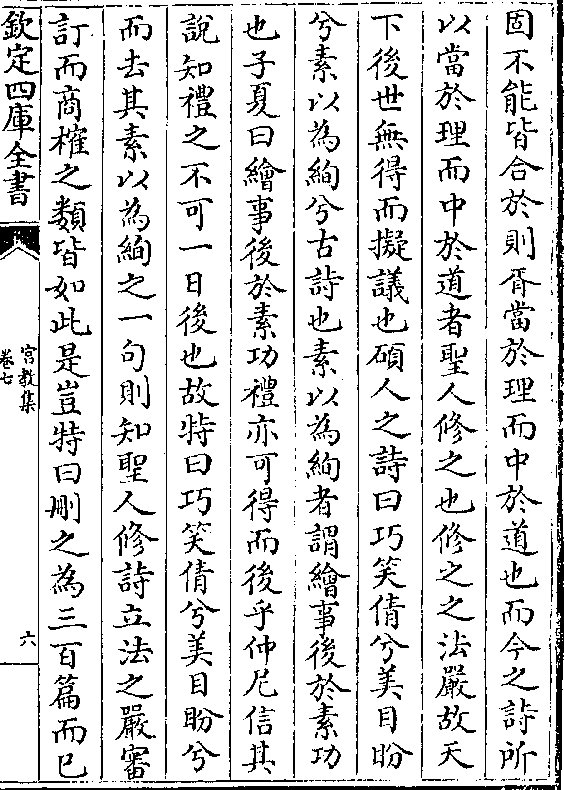 固不能皆合於則胥當於理而中於道也而今之詩所
以當於理而中於道者聖人修之也修之之法嚴故天
下後世無得而擬議也碩人之詩曰巧笑倩兮美目盼
兮素以為絢兮古詩也素以為絢者謂繪事後於素功
也子夏曰繪事後於素功禮亦可得而後乎仲尼信其
說知禮之不可一日後也故特曰巧笑倩兮美目盼兮
而去其素以為絢之一句則知聖人修詩立法之嚴審
訂而商榷之類皆如此是豈特曰刪之為三百篇而已
欽定四庫全書
宮教集
卷七
六